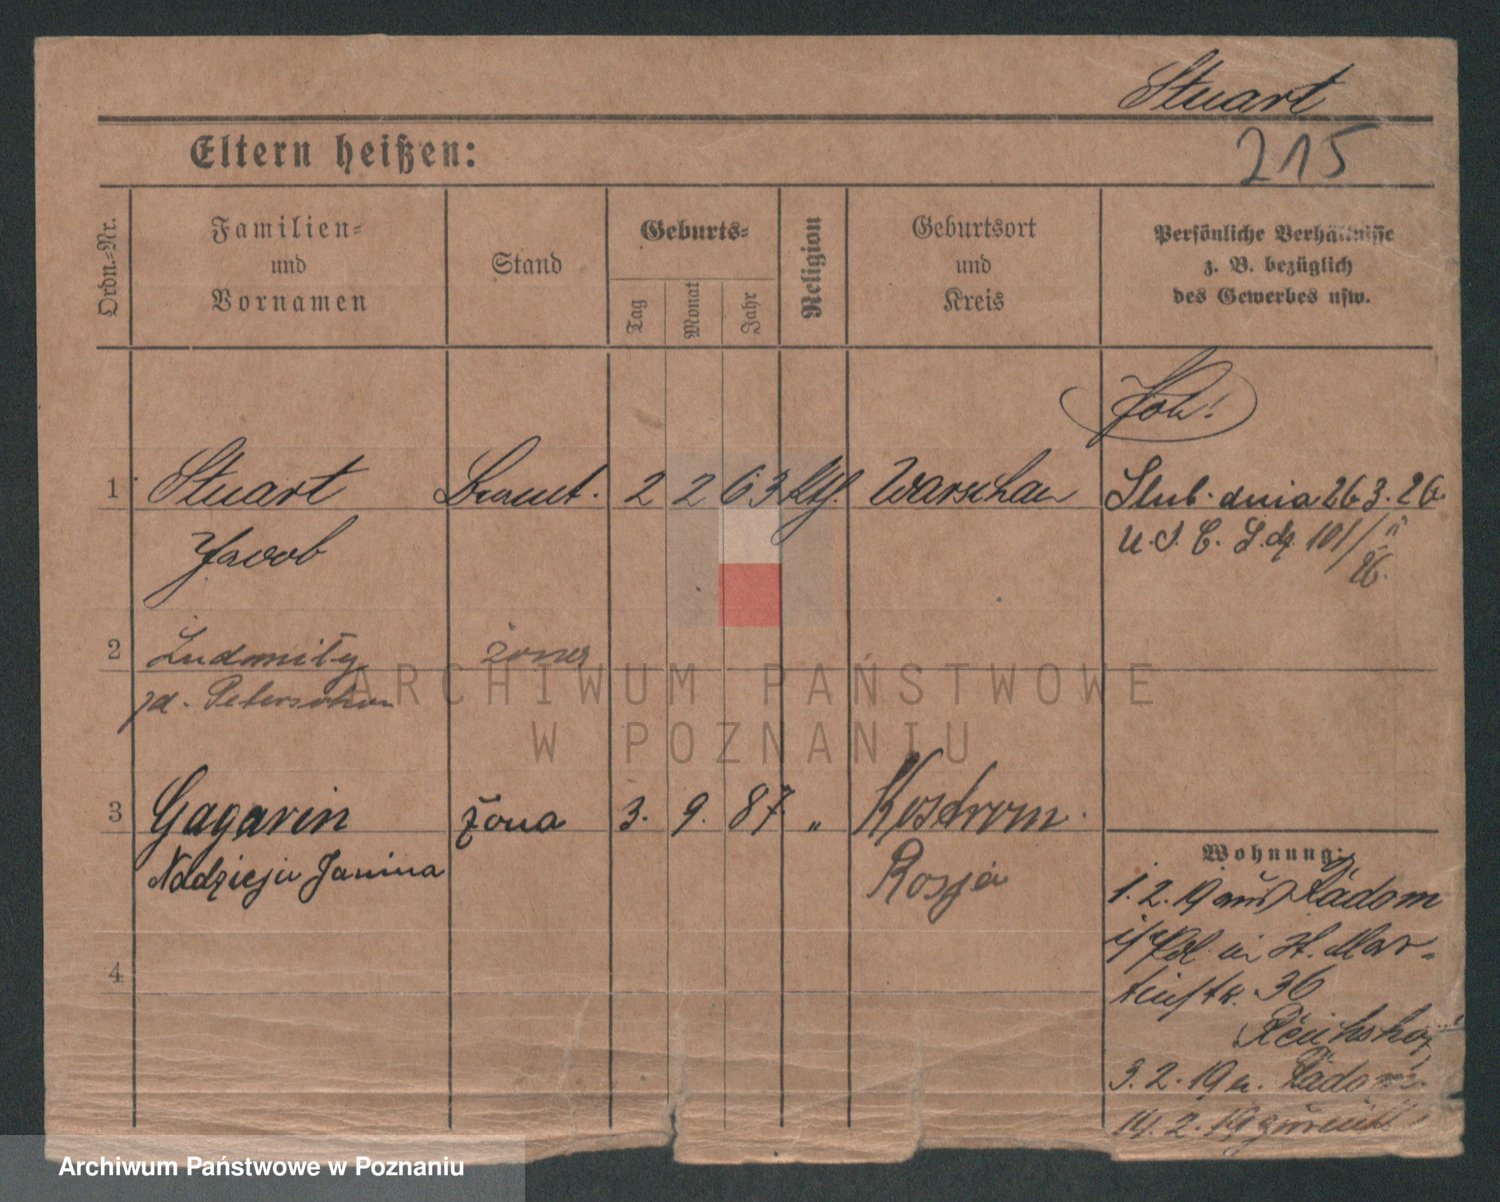 Stuart
215
Eltern heißen:
Ordn.-Nr.
Familien-
und
Vornamen
Stand
Geburts-
Tag
Monat
Jahr
Religion
Geburtsort
und
Kreis
Persönliche Verhältnisse
z. B. bezüglich
des Gewerbes usw.
1
Stuart
2 2 63 Kth. Warschau
Ślub. dnia 26.3.26.
Jacob
U.S.C. L.dz. 101/II
26.
2
Ludomiły żona
zd. Petersohon
3
Gagarin
żona
3. 9. 87. "
Kostrom.
Nadzieja Janina
Rosja
4
Wohnung:
1.2.19 aus Radom
St. Mar-
tinstr. 36
Reichshof
3.2.19 n. Radom
14.2.19 zurück
ARCHIWUM PAŃSTWOWE
W POZNANIU
Archiwum Państwowe w Poznaniu